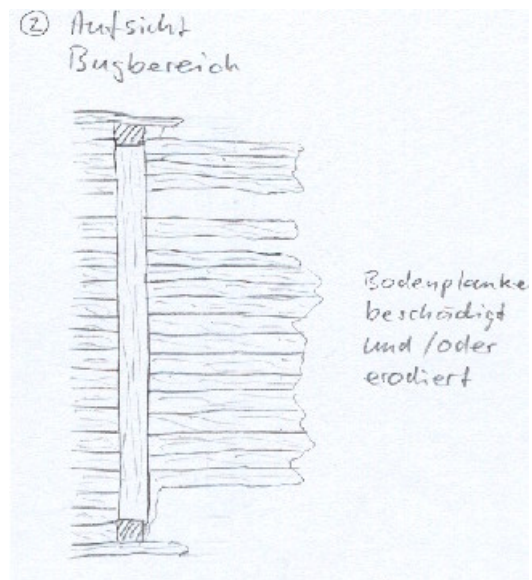 ② Aufsicht
Bugbereich
Bodenplanke
beschädigt
und/oder
erodiert